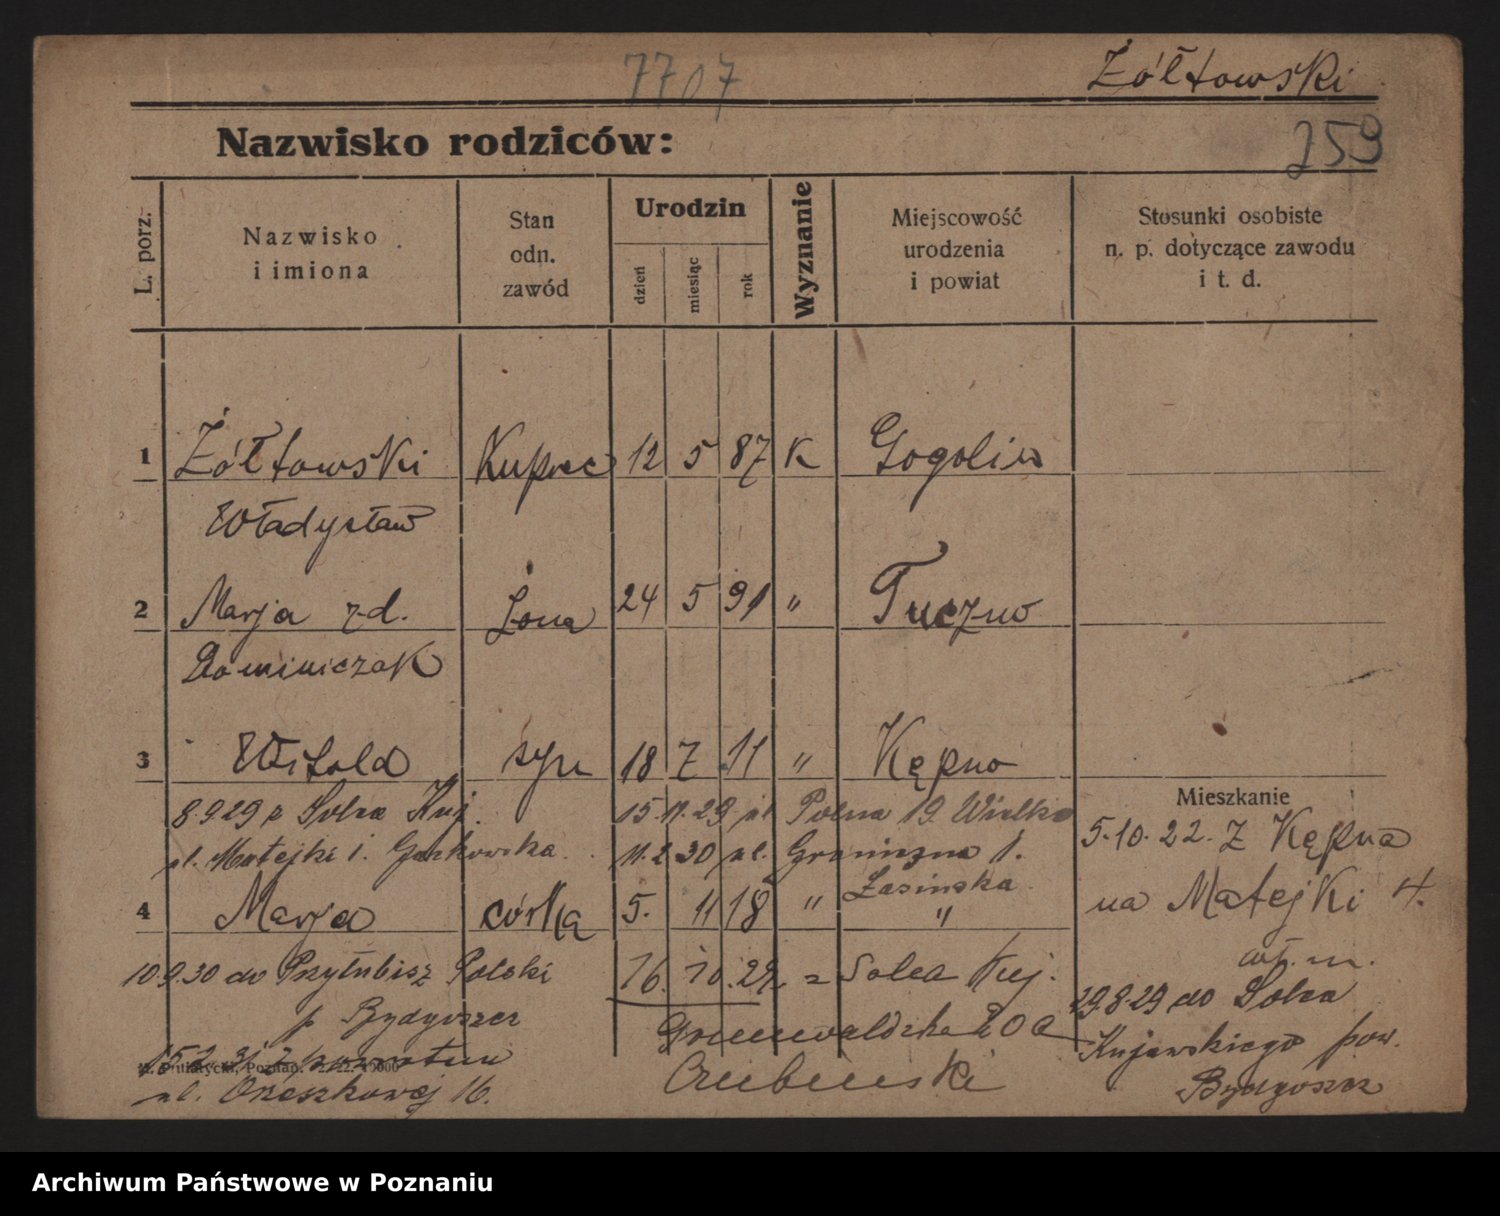 7707
Żółtowski
Nazwisko rodziców:
259
L. porz.
Nazwisko
i imiona
Stan
odn.
zawód
Urodzin
dzień
miesiąc
rok
Wyznanie
Miejscowość
urodzenia
i powiat
Stosunki osobiste
n. p. dotyczące zawodu
i t. d.
1 Żółtowski Kupiec 12 5 87 K Gogolin
Władysław
2 Marja zd. żona 24 5 91 " Tuczno
Dominiczak
3 Witold syn 18 7 11 " Kępno
8.9.29 z Solca Kuj. 15.11.29 ul Polna 19. Wielka
ul. Matejki 1. 11.2.30 ul. Graniczna 1.
Łasińska
4 Marja córka 5. 11 18 " "
10.9.30 do Przyłubisz Polski 16.10.29. z Solca Kuj.
p Bydgoszcz Grunwaldzka 20a
15.2.31 z powrotem
Poznań.
ul. Orzeszkowej 16.
Mieszkanie
5.10.22. Z Kępna
na Matejki 4.
wł. m.
29.8.29 do Solca
Kujawskiego pow.
Bydgoszcz
Archiwum Państwowe w Poznaniu